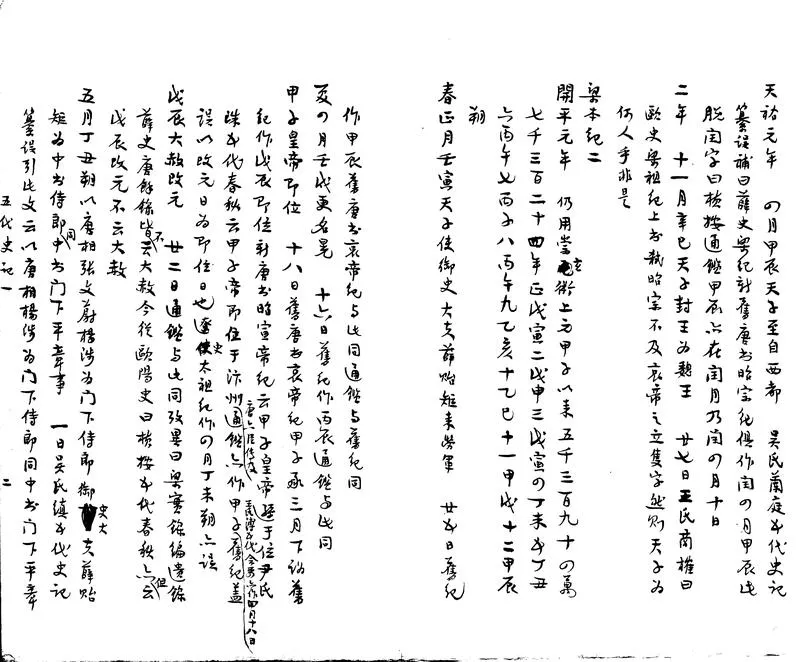 天祐元年　四月甲辰天子至自西都　吳氏蘭庭五代史記
纂誤補曰薛史梁紀新舊唐書昭宗紀俱作閏四月甲辰此
脫閏字曰楨按通鑑甲辰亦在閏月乃閏四月十日
二年　十一月辛巳天子封王為魏王　廿七日王氏商榷曰
歐史梁祖紀上書弒昭宗不及哀帝之立隻字然則天子為
何人乎非是
梁本紀二
開平元年　仍用崇玄術上元甲子以來五千三百九十四萬
七千三百二十四年正戊寅二戊申三戊寅四丁未五丁丑
六丙午七丙子八丙午九乙亥十乙巳十一甲戌十二甲辰
朔
春正月壬寅天子使御史大夫薛貽矩來勞軍　廿五日舊紀
作甲辰舊唐書哀帝紀与此同通鑑与舊紀同
夏四月壬戌更名晃　十六日舊紀作丙辰通鑑与此同
甲子皇帝即位　十八日舊唐書哀帝紀甲子承三月下舊
紀作戊辰即位新唐書昭宣帝紀云甲子皇帝遜于位尹氏
唐六臣傳及王溥五代會要亦作四月十八日
洙五代春秋云甲子帝即位于汴州通鑑亦作甲子舊紀蓋
誤以改元日為即位日也遼史太祖紀作四月丁未朔亦誤
戊辰大赦改元　廿二日通鑑与此同攷異曰梁實錄編遺錄
薛史唐餘錄皆不云大赦今從歐陽史曰楨按五代春秋亦但云
戊辰改元不云大赦
五月丁丑朔以唐相張文蔚楊涉為门下侍郎御史大夫薛貽
矩為中書侍郎同中書门下平章事　一日吳氏縝五代史記
纂誤引此文云以唐相楊涉為门下侍郎同中書门下平章
五代史記一　二